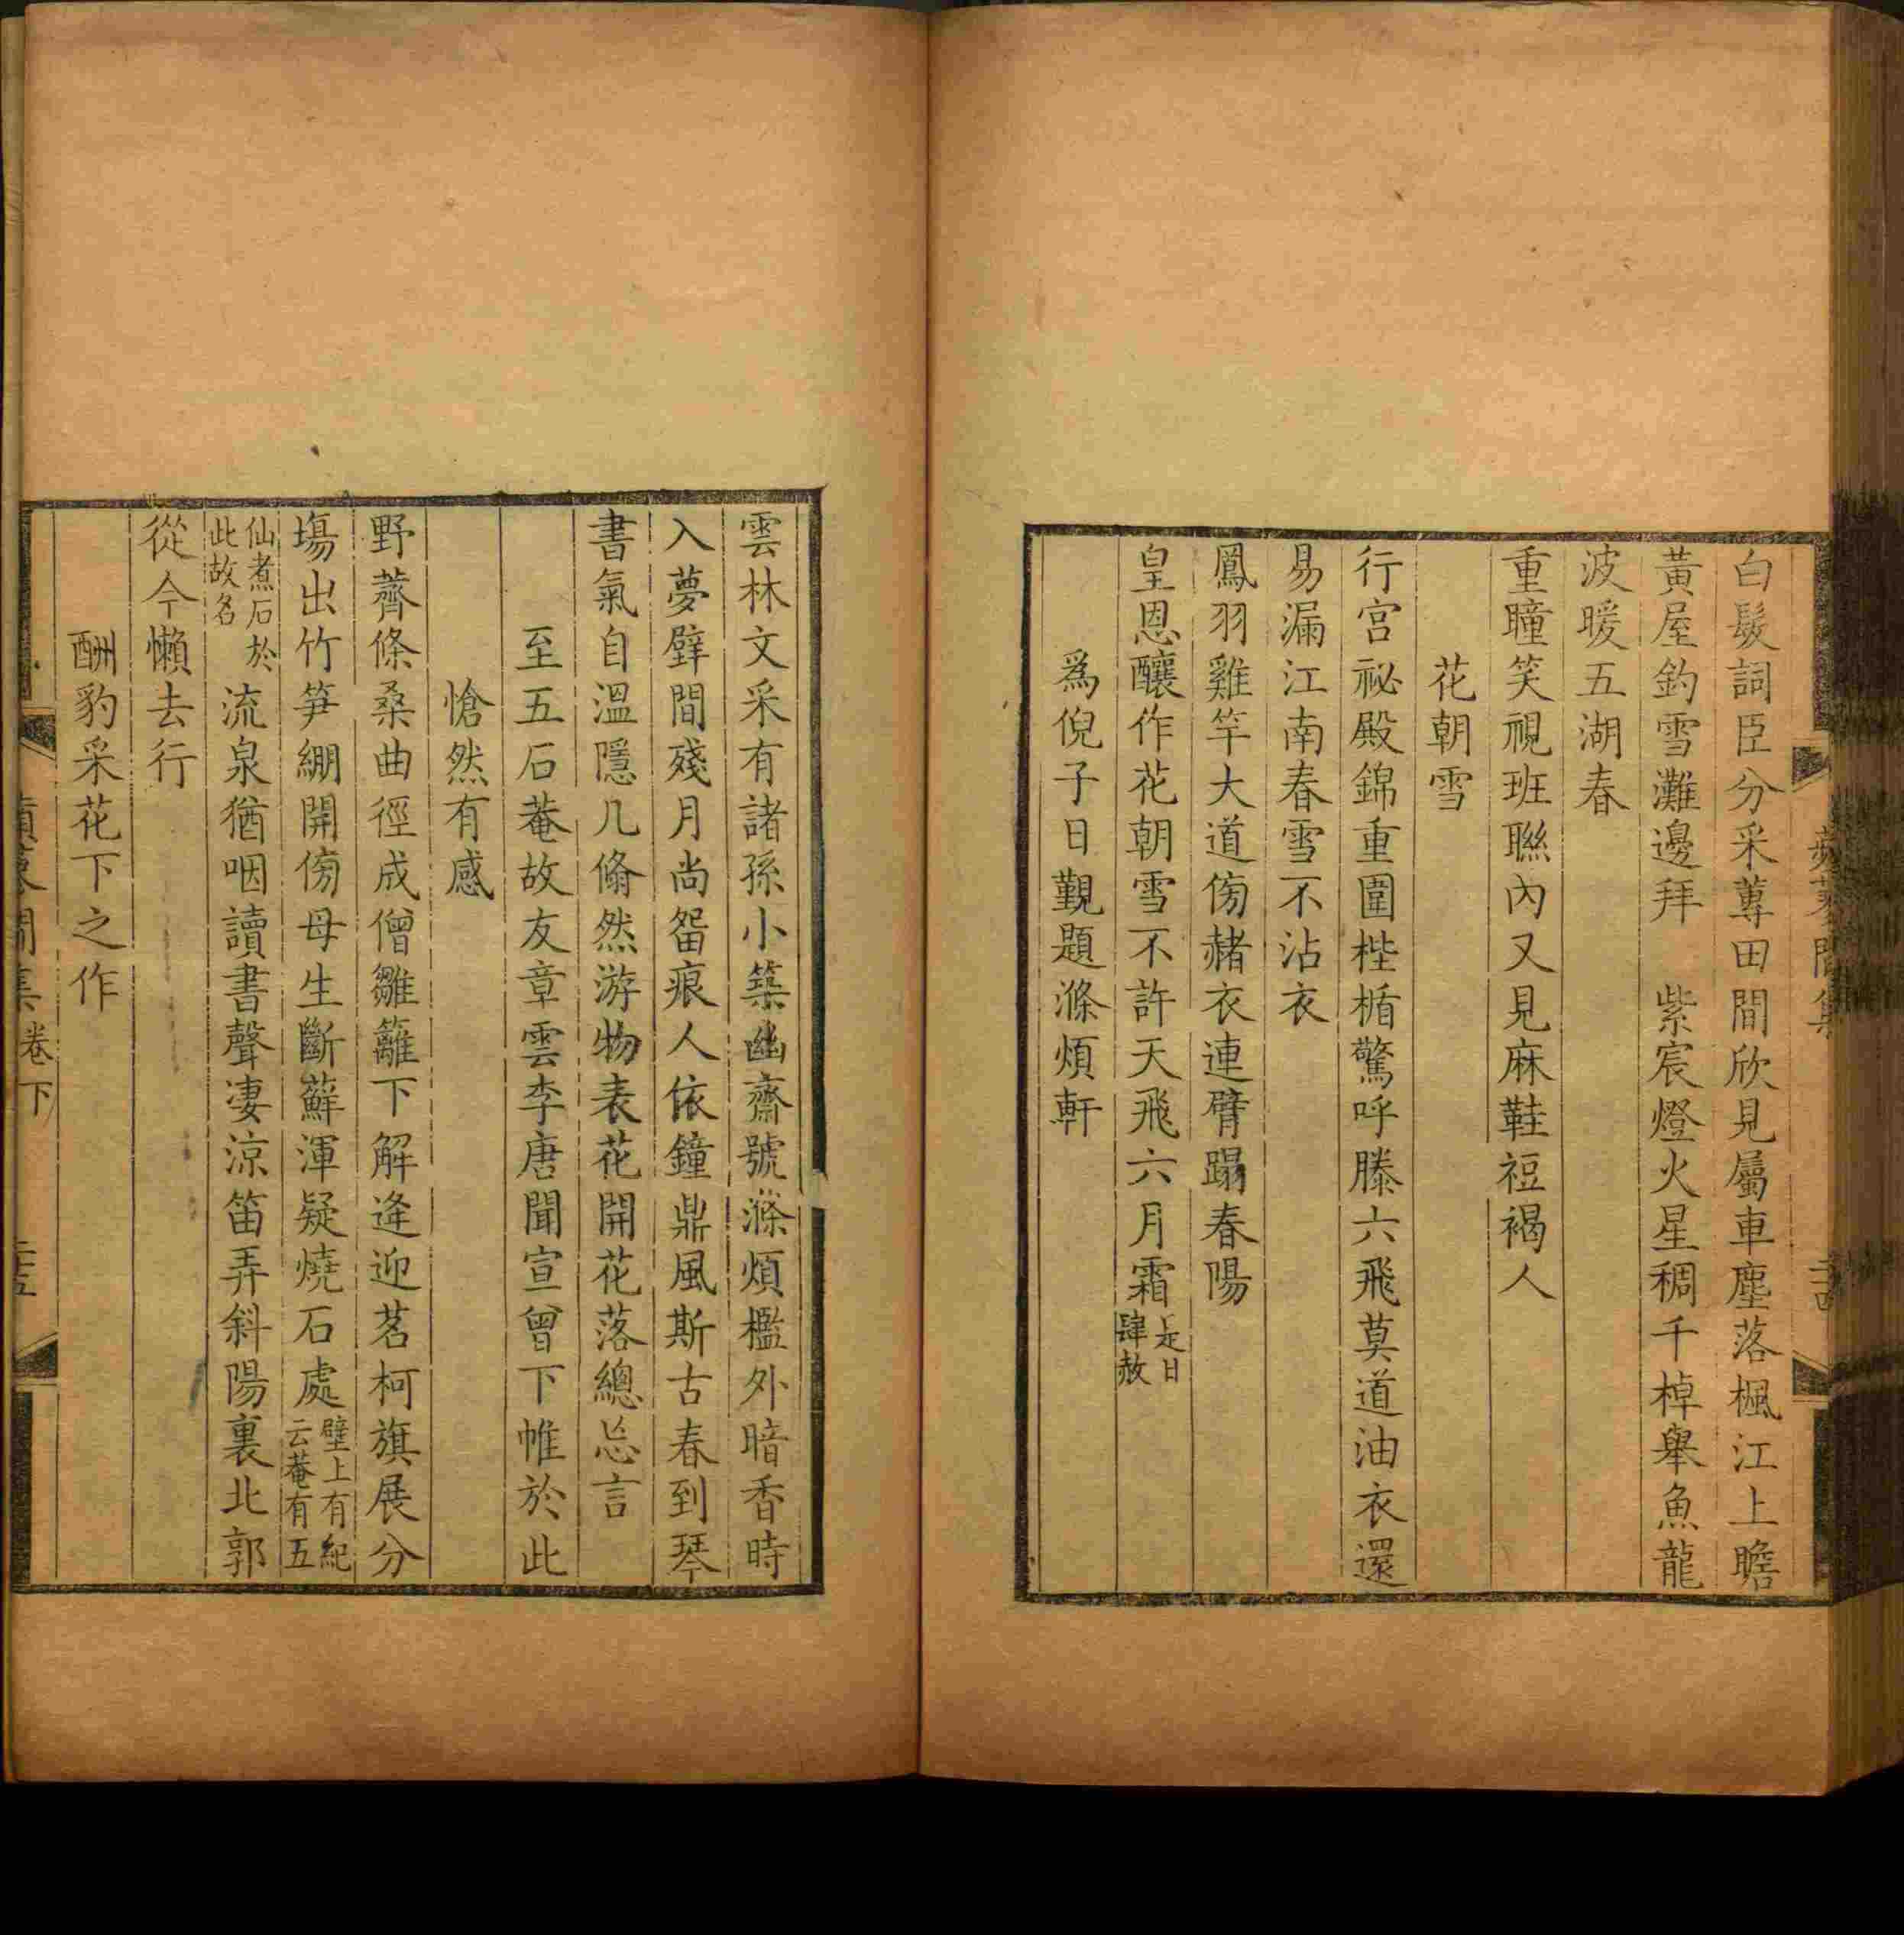 白髮詞臣分采蓴田間欣見屬車塵落楓江上瞻
黃屋釣雪灘邊拜　紫宸燈火星稠千棹舉魚龍
波暖五湖春
重瞳笑視班聯內又見麻鞋裋褐人
花朝雪
行宮祕殿錦重圍梐楯驚呼滕六飛莫道油衣還
易漏江南春雪不沾衣
鳳羽雞竿大道傍赭衣連臂蹋春陽
皇恩釀作花朝雪不許天飛六月霜是日肆赦
爲倪子日覲題滌煩軒
雲林文采有諸孫小築幽齋號滌煩檻外暗香時
入夢壁間殘月尚畱痕人依鐘鼎風斯古春到琴
書氣自溫隱几翛然游物表花開花落總忘言
至五石菴故友章雲李唐聞宣曾下帷於此
愴然有感
野薺條桑曲徑成僧雛籬下解逄迎茗柯旗展分
塲出竹笋綳開傍母生斷蘚渾疑燒石處壁上有紀云菴有五
仙煮石於此故名流泉猶咽讀書聲凄涼笛弄斜陽裏北郭
從今懶去行
酬豹采花下之作
卷下